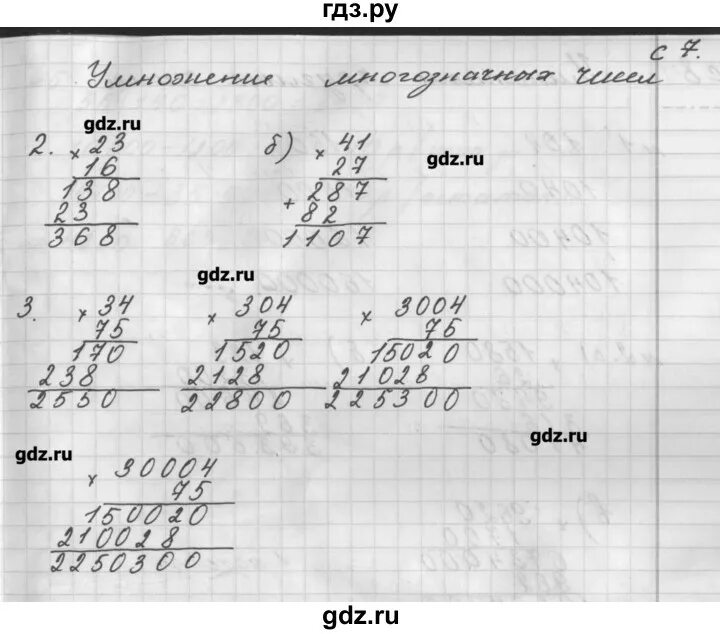 гдз.ру
с 7.
Умножение многозначных чисел
gdz.ru
2. × 23 б) × 41
16 27
gdz.ru
138 + 287
23 82
368 1107
gdz.ru
3. × 34 × 304 × 3004
75 75 75
170 1520 15020
238 2128 21028
2550 22800 225300
gdz.ru
gdz.ru
× 30004
75
150020
210028
2250300
gdz.ru